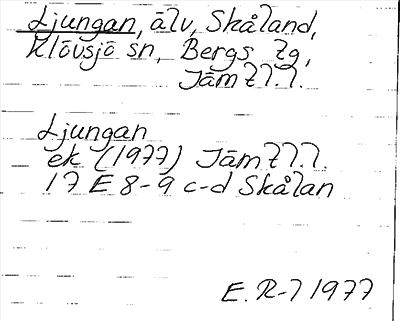 Ljungan, älv, Skåland,
Klövsjö sn, Bergs tg,
Jämtl.
Ljungan
ek (1977) Jämtl.
17 E 8-9 c-d Skålan
E. R-l 1977